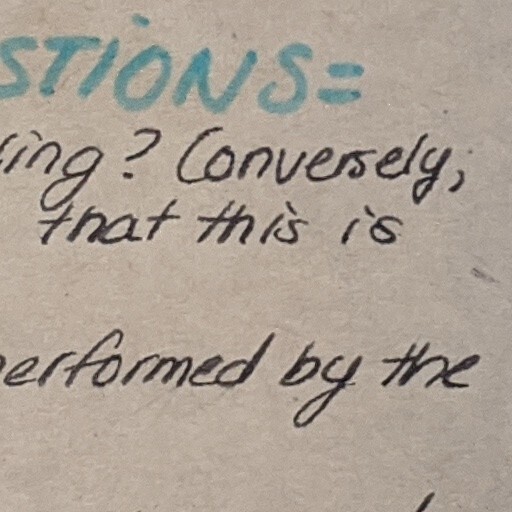 STIONS=
ing? Conversely,
that this is
erformed by the